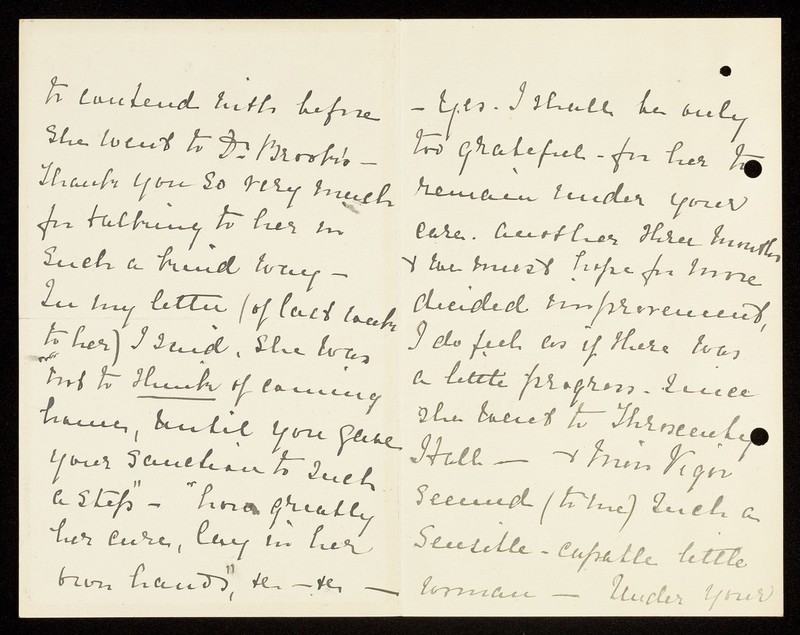 to contend with before
she went to Dr. Brook's –
Thank you so very much
for talking to her in
such a kind way –
In my letter (of last week
to her) I said, she was
"not to think of coming
home, until you gave
your sanction to such
a step" – "how greatly
her cure, lay in her
own hands", &c – &c –
– Yes. I shall be only
too grateful – for her to
remain under your
care. another three months
& we must hope for more
decided improvement,
I do feel as if there was
a little progress. since
she went to
Hall – & Miss Vigor
seemed (to me) such a
sensible – capable little
woman – Under your